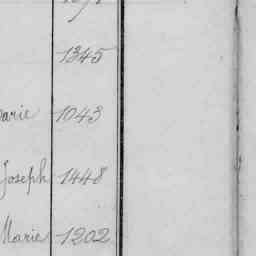 1345
1043
Joseph 1448
Marie 1202